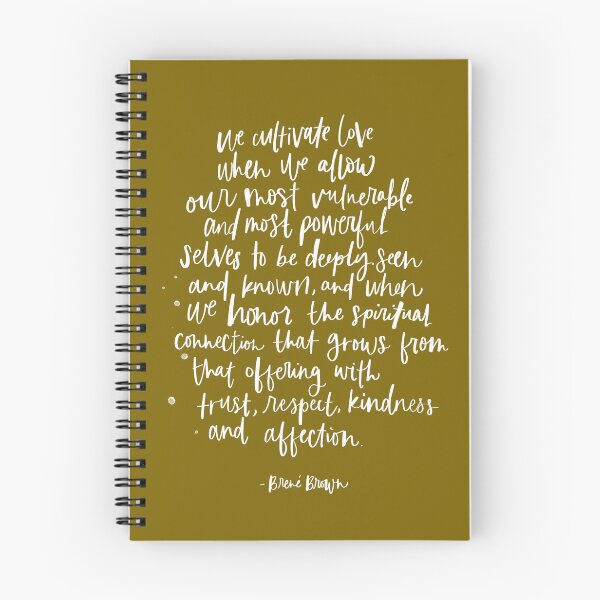 We cultivate love
when we allow
our most vulnerable
and most powerful
selves to be deeply seen
and known, and when
we honor the spiritual
connection that grows from
that offering with
trust, respect, kindness
and affection.
- Brené Brown